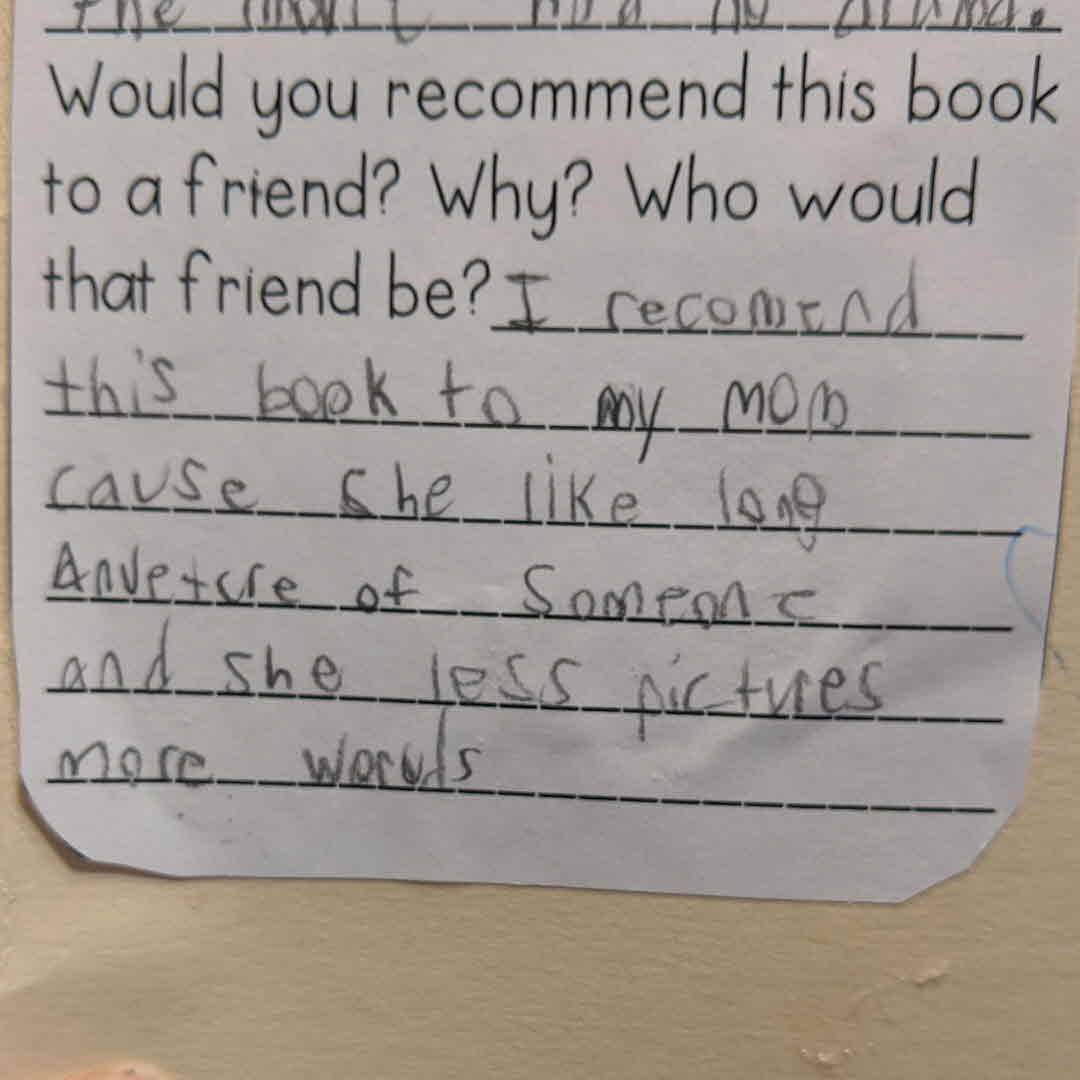 The had no drama.
Would you recommend this book
to a friend? Why? Who would
that friend be? I recomend
this book to my mom
cause she like long
Anvetcre of Someone
and she less pictures
more woruds